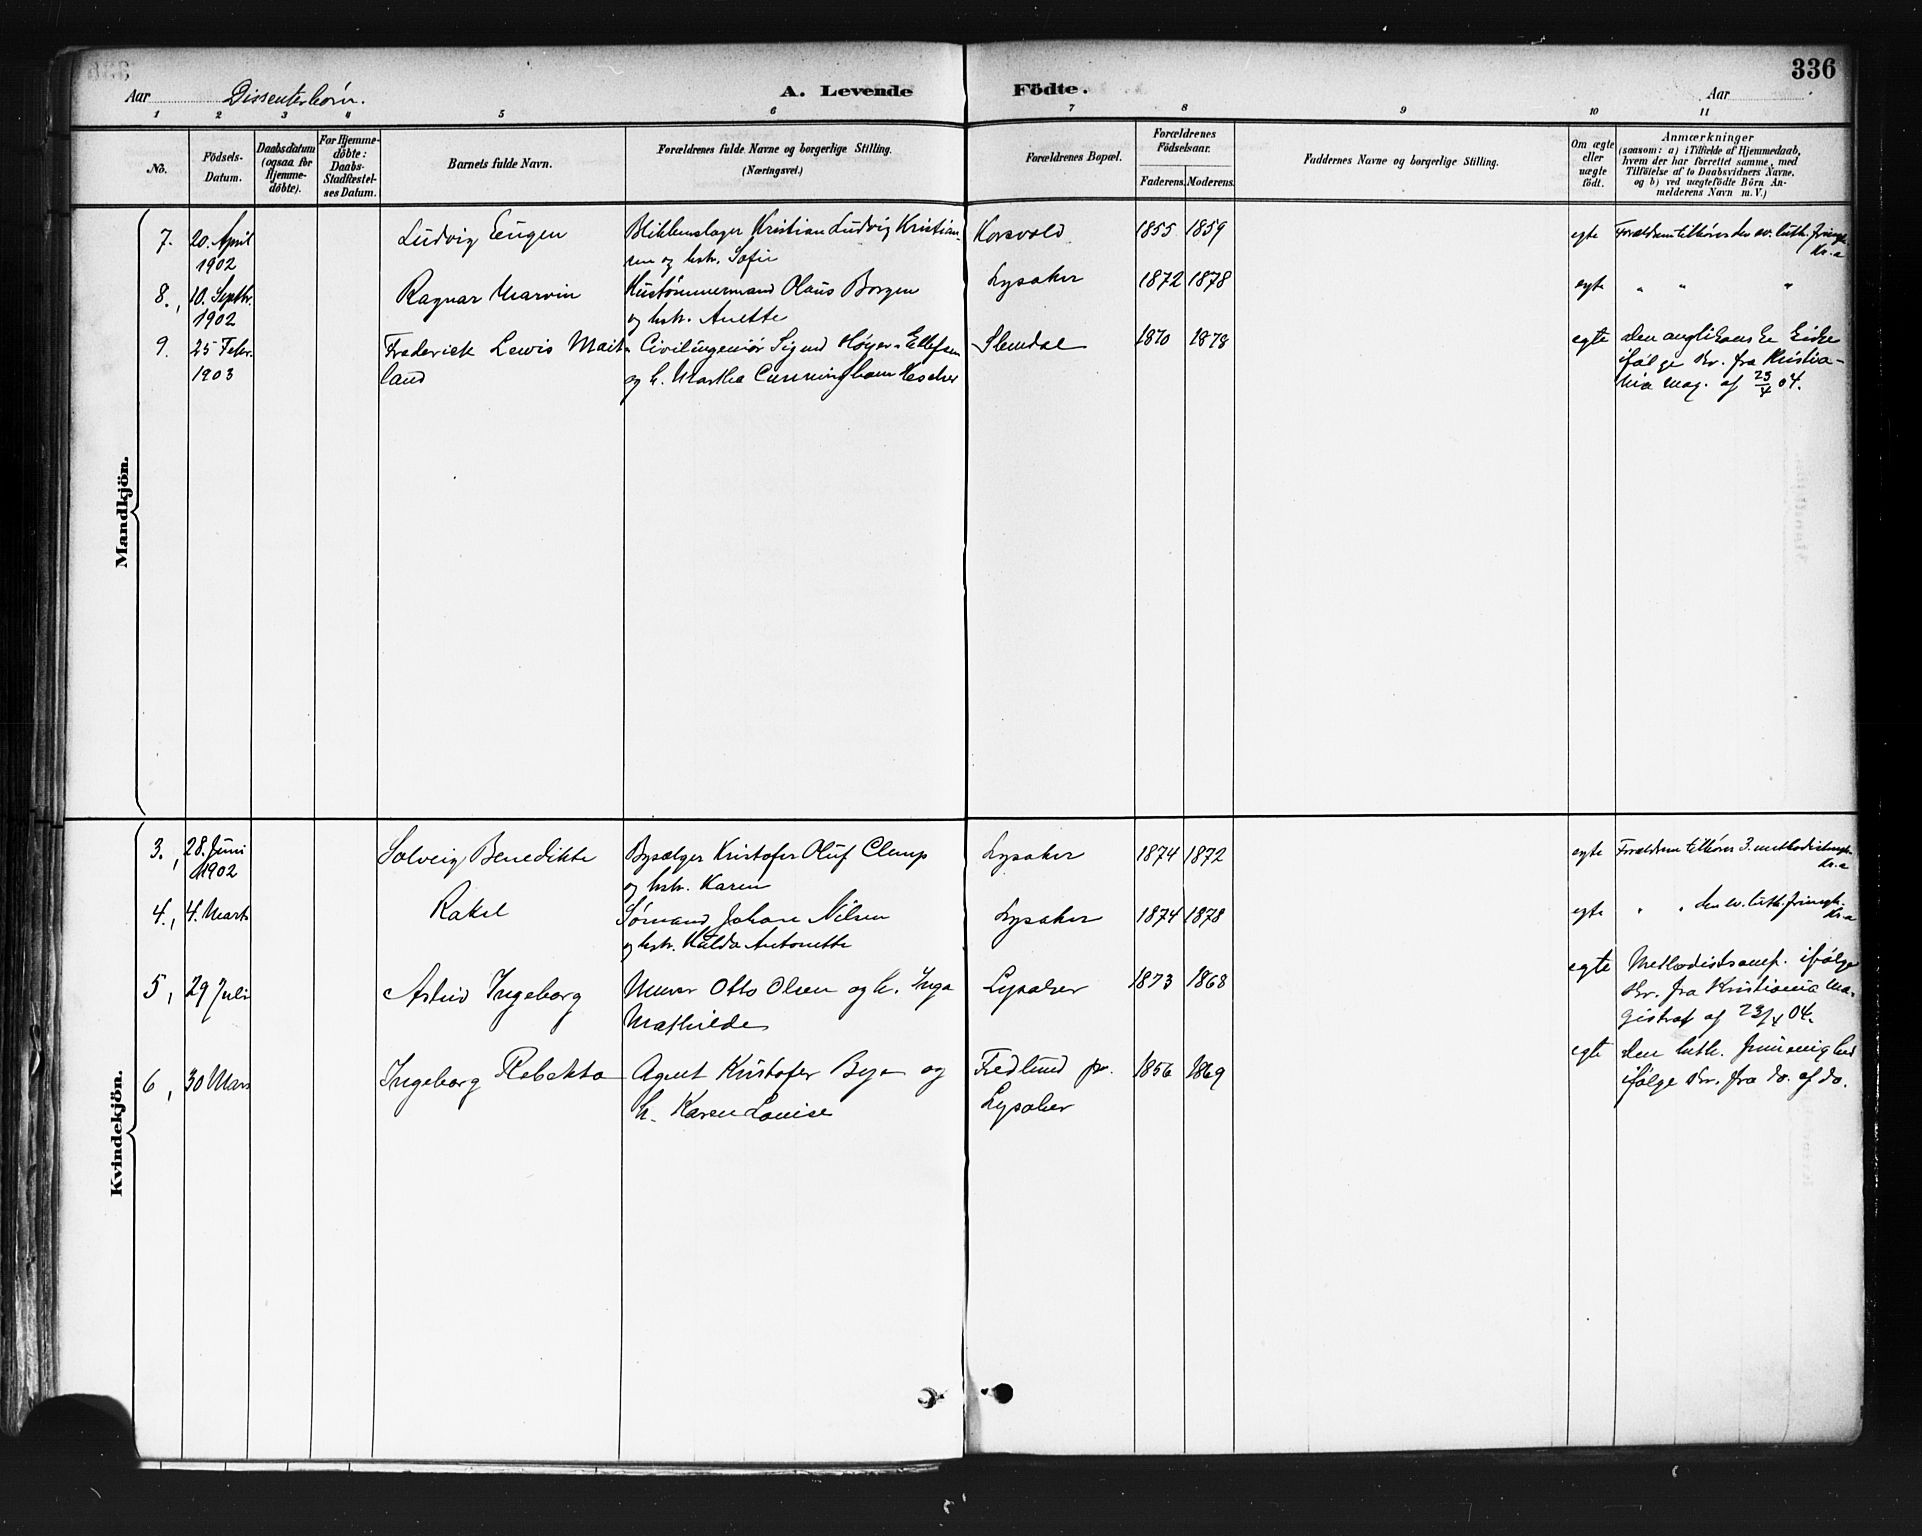 336
Aar Dissenterbørn. A. Levende Födte. Aar
1 2 3 4 5 6 7 8 9 10 11
No.
Födsels-
Datum.
Daabsdatum
(ogsaa for
Hjemme-
døbte).
For Hjemme-
døbte:
Daabs-
Stadfæstel-
ses Datum.
Barnets fulde Navn.
Forældrenes fulde Navne og borgerlige Stilling.
(Næringsvei.)
Forældrenes Bopæl.
Forældrenes
Födselsaar.
Faderens. Moderens.
Faddernes Navne og borgerlige Stilling.
Om ægte
eller
uægte
født.
Anmærkninger
(saasom: a) i Tilfælde af Hjemmedaab,
hvem der har forrettet samme, med
Tilföielse af to Daabsvidners Navne,
og b) ved uægtefödte Börn An-
melderens Navn m. V.)
Mandkjön.
7. 20. April
1902
Ludvig Eugen
Blikkenslager Kristian Ludvig Kristian-
sen og hstr. Sofie
Korsvold
1855 1859
egte
Forældrene tilhører den ev. luth. frimgh.
Kr.a
8., 10. Septbr.
1902
Ragnar Marvin
Hustømmermand Olaus Borgen
og hstr. Anette
Lysaker
1872 1878
egte
" " "
9. 25 Febr.
1903
Frederick Lewis Mait-
land
Civilingeniør Sigurd Høyer-Ellefsen
og h. Martha Cunningham
Slemdal
1870 1878
egte
den anglikanske Kirke
ifølge Skr. fra Kristia-
nia mag. af 23/4 04.
Kvindekjön.
3., 28. Juni
1902
Solveig Benedikte
Bysælger Kristofer Oluf Clemp
og hstr. Karen
Lysaker
1874 1872
egte
Forældrene tilhører 3. methodistmgh.
Kr.a
4., 4. Marts
Rakel
Sømand Johan Nilsen
og hstr. Hulda Antonette
Lysaker
1874 1878
egte
" " den ev. luth. frimgh.
Kr.a
5, 29 Juli
Astrid Ingeborg
Murer Otto Olsen og h. Inga
Mathilde
Lysaker
1873 1868
egte
Methodistsamf. ifølge
Skr. fra Kristiania Ma-
gistrat af 23/4 04.
6, 30 Mars
Ingeborg Rebekka
Agent Kristofer Bye og
h. Karen Louise
Fredlund pr.
Lysaker
1856 1869
egte
den luth. frimenighed
ifølge Skr. fra do. af do.